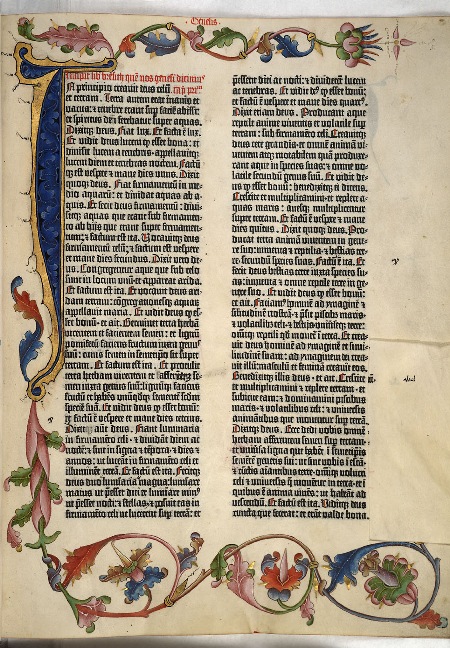 Genesis.
Incipit lib bresith quē nos genesī dicimus
In principio creavit deus celū
et terram. Terra autem erat inanis et
vacua: et tenebre erant sup faciē abissi:
et spiritus dñi ferebatur super aquas.
Dixitqʒ deus. Fiat lux. Et facta ē lux.
Et vidit deus lucem qʒ esset bona: et
divisit lucem a tenebris · appellavitqʒ
lucem diem et tenebras noctem. Factūqʒ
est vespere et mane dies unus. Dixit
quoqʒ deus. Fiat firmamentū in medio
aquarū: et dividat aquas ab aquis.
Et fecit deus firmamentū: divisitqʒ
aquas que erant sub firmamento
ab hijs que erant super firmamentum:
et factum est ita. Vocavitqʒ deus
firmamentū celū: et factum est vespere
et mane dies secundus. Dixit vero deus.
Congregentur aque que sub celo
sunt in locum unū et appareat arida.
Et factum est ita. Et vocavit deus aridam
terram: congregacionesqʒ aquarū
appellavit maria. Et vidit deus qʒ esset
bonū · et ait. Germinet terra herbā
virentem et facientem semen: et lignū
pomiferū faciens fructum iuxta genus
suū: cuius semen in semetipso sit super
terram. Et factum est ita. Et protulit
terra herbam virentem et facientem semen
iuxta genus suū: lignūqʒ faciens
fructū et habēs unūquodqʒ sementē secundū
speciē suā. Et vidit deus qʒ esset bonū:
et factū est vespere et mane dies tercius.
Dixitqʒ autē deus. Fiant luminaria
in firmamēto celi · et dividāt diem ac
noctē: et sint in signa et tēpora · et dies et
annos: ut luceāt in firmamēto celi et
illuminēt terrā. Et factū est ita. Fecitqʒ
deus duo luminaria magna: luminare
maius ut pesset diei et luminare minus
ut pesset nocti: et stellas · et posuit eas in
firmamēto celi ut lucerent sup terrā: et
pessent diei ac nocti: et dividerēt lucem
ac tenebras. Et vidit deus qʒ esset bonū:
et factū ē vespere et mane dies quartus.
Dixit etiam deus. Producant aque
reptile anime viventis et volatile super
terram: sub firmamēto celi. Creavitqʒ
deus cete grandia · et omnē animā viventem
atqʒ motabilem quā produxerant
aque in species suas: et omne volatile
secundū genus suū. Et vidit deus
qʒ esset bonū: benedixitqʒ eis dicens.
Crescite et multiplicamini · et replete aquas
maris: avesqʒ multiplicentur
super terram. Et factū ē vespere et mane
dies quintus. Dixit quoqʒ deus. Producat
terra animā viventem in genere
suo: iumenta et reptilia · et bestias terre
secundū species suas. Factūqʒ ē ita. Et
fecit deus bestias terre iuxta species suas:
iumenta et omne reptile terre in genere
suo. Et vidit deus qʒ esset bonū:
et ait. Faciamus hominē ad ymaginē et
similitudinē nostrā · et presit piscibus maris ·
et volatilibus celi · et bestijs universeqʒ terre:
omniqʒ reptili qd movet ī terra. Et creavit
deus hominē ad ymaginē et similitudinē
suam: ad ymaginem dei creavit
illū: masculū et feminā creavit eos.
Benedixitqʒ illis deus · et ait. Crescite
et multiplicamini et replete terram · et
subicite eam: et dominamini piscibus
maris · et volatilibus celi: et universis
animātibus que moventur sup terrā.
Dixitqʒ deus. Ecce dedi vobis omnē
herbam afferentem semen sup terram ·
et universa ligna que habēt ī semetipsis
sementē generis sui: ut sint vobis ī escā ·
et cūctis aīantibus terre · omniqʒ volucri
celi et universis qʒ moventur in terra · et ī
quibus ē anima vivēs: ut habeāt ad
vescendū. Et factū est ita. Viditqʒ deus
cuncta que fecerat: et erāt valde bona.